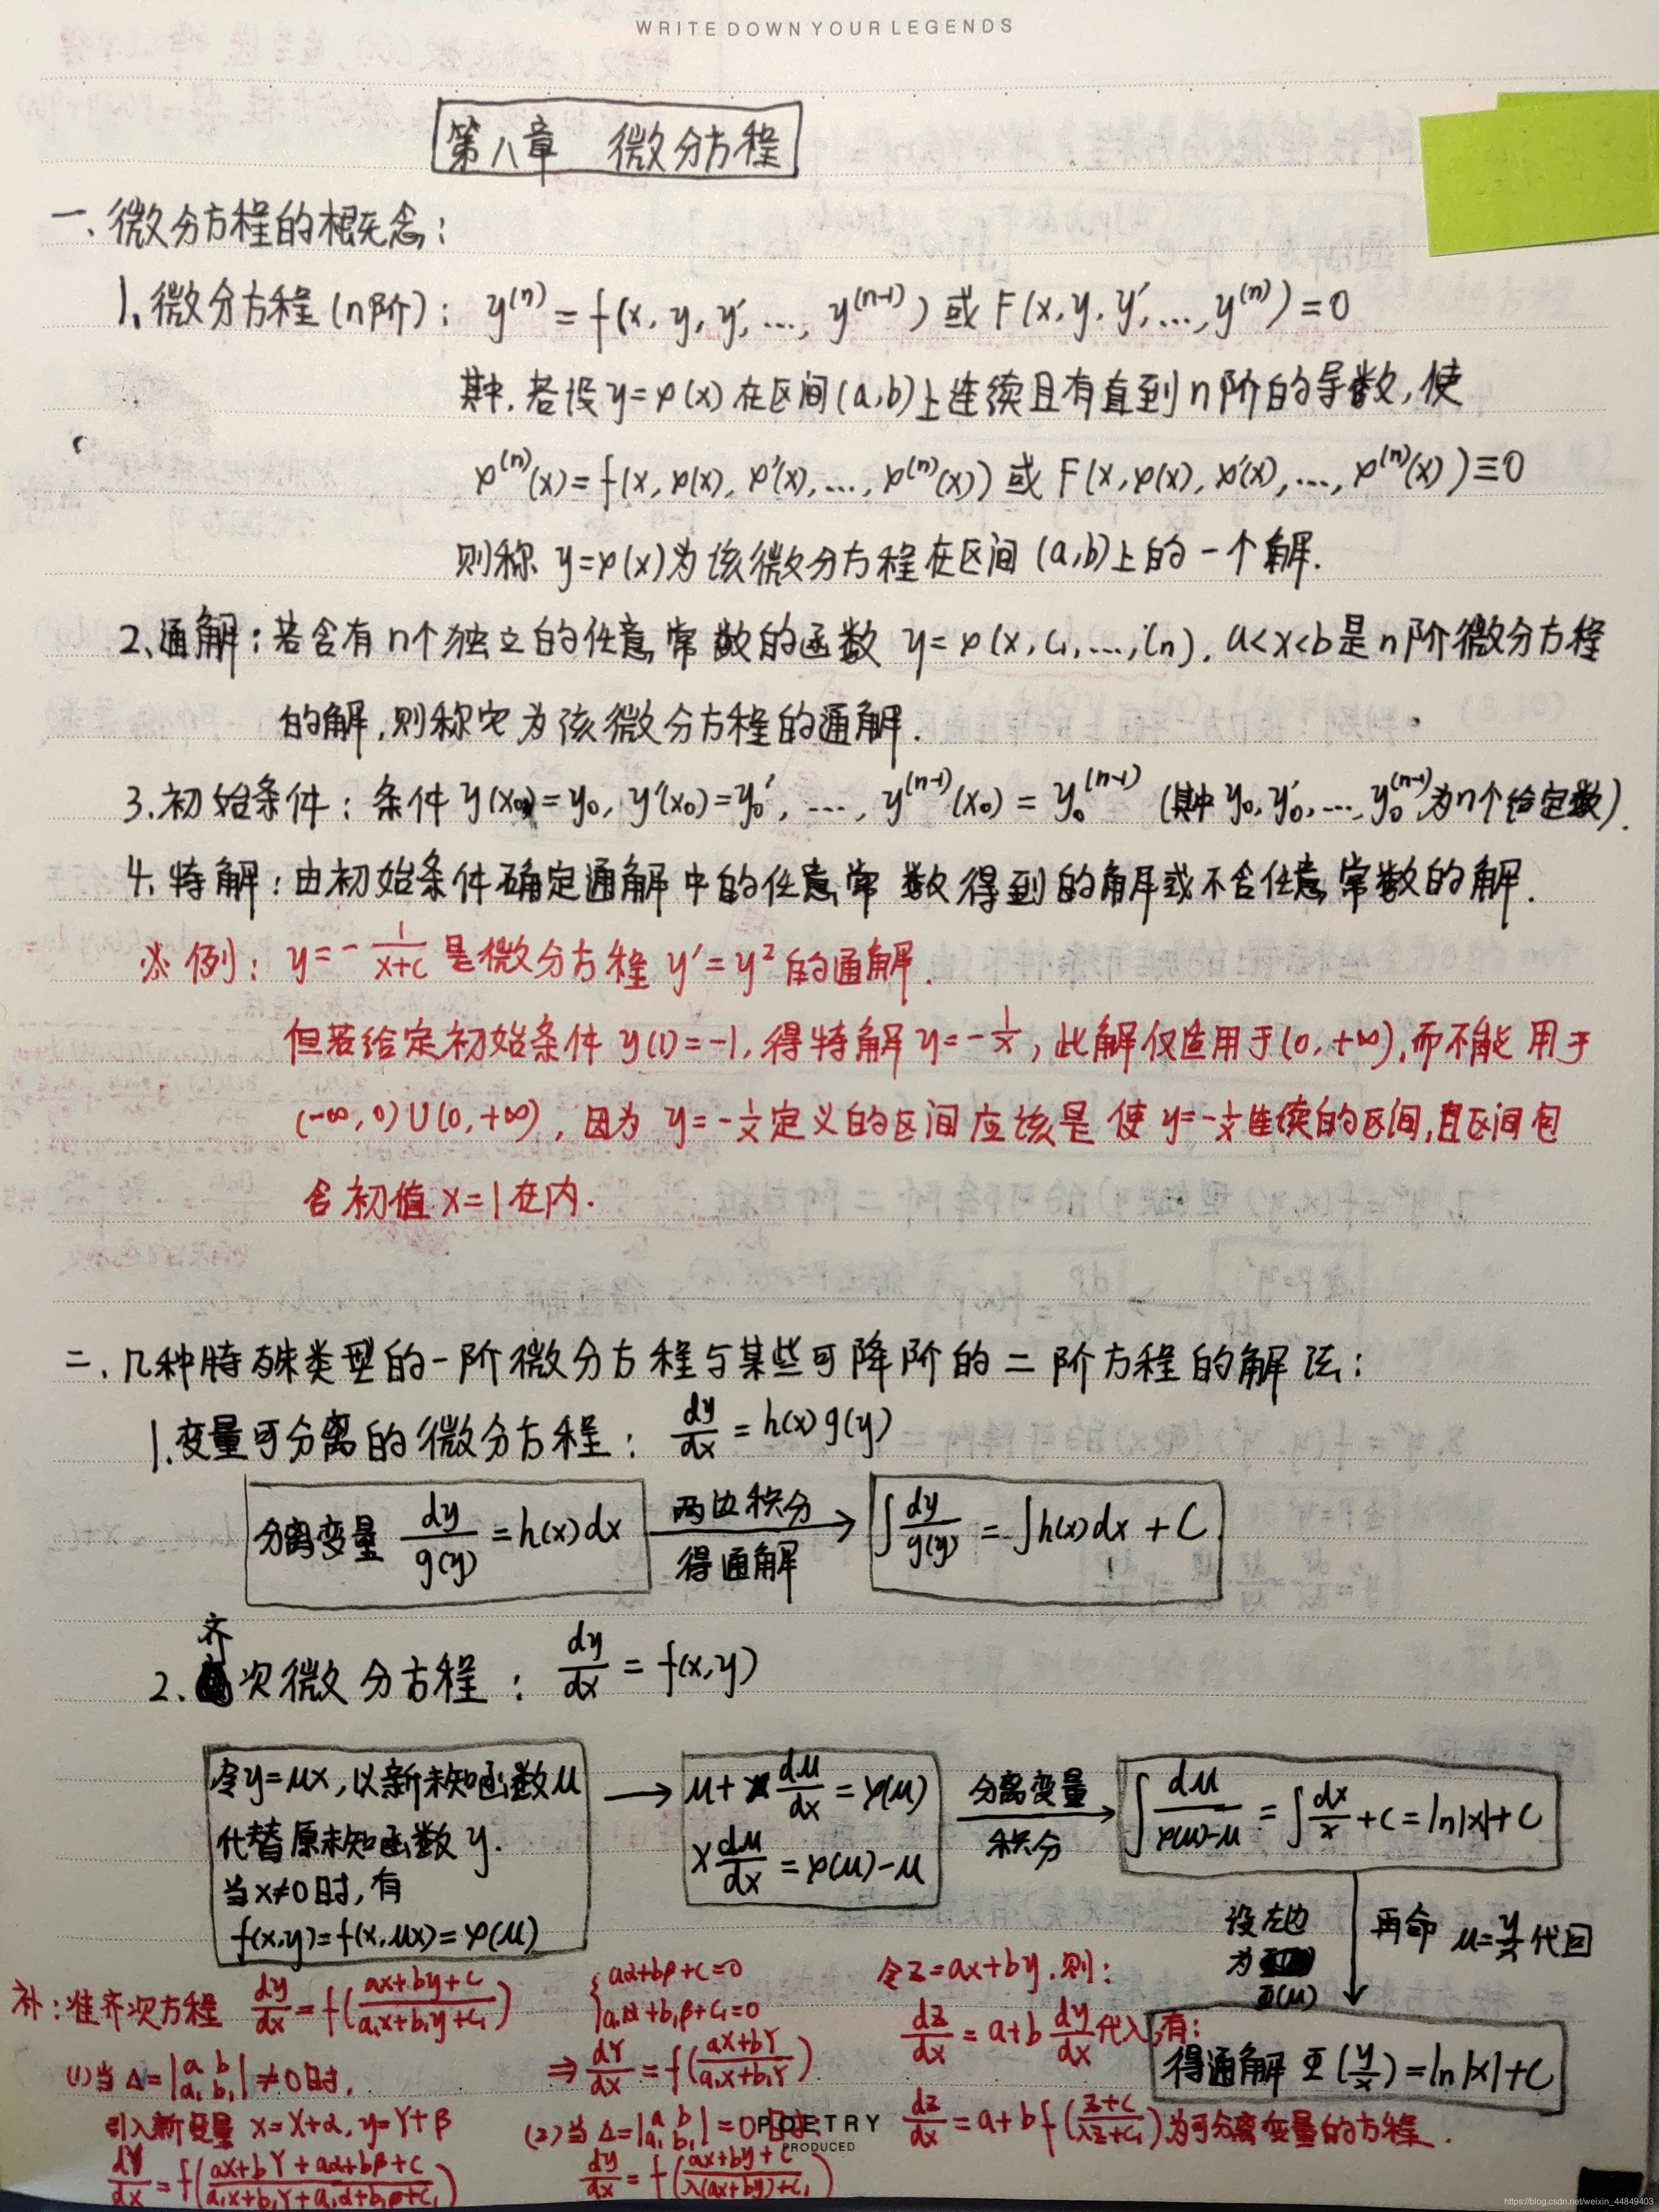 WRITE DOWN YOUR LEGENDS
第八章 微分方程
一、微分方程的概念:
1、微分方程(n阶): y⁽ⁿ⁾ = f(x, y, y', ..., y⁽ⁿ⁻¹⁾) 或 F(x, y, y', ..., y⁽ⁿ⁾) = 0
其中,若设y=φ(x)在区间(a,b)上连续且有直到n阶的导数,使
φ⁽ⁿ⁾(x) = f(x, φ(x), φ'(x), ..., φ⁽ⁿ⁾(x)) 或 F(x, φ(x), φ'(x), ..., φ⁽ⁿ⁾(x)) ≡ 0
则称 y=φ(x)为该微分方程在区间(a,b)上的一个解.
2、通解:若含有n个独立的任意常数的函数 y=φ(x, C₁, ..., Cn), a<x<b是n阶微分方程
的解,则称它为该微分方程的通解.
3.初始条件:条件y(x₀)=y₀, y'(x₀)=y₀', ..., y⁽ⁿ⁻¹⁾(x₀) = y₀⁽ⁿ⁻¹⁾ (其中y₀, y₀', ..., y₀⁽ⁿ⁻¹⁾为n个给定数).
4、特解:由初始条件确定通解中的任意常数得到的解或不含任意常数的解.
※例: y = -1/(x+c) 是微分方程 y' = y² 的通解.
但若给定初始条件 y(1) = -1, 得特解 y = -1/x, 此解仅适用于(0, +∞),而不能用于
(-∞, 0)∪(0, +∞), 因为 y = -1/x定义的区间应该是使 y = -1/x连续的区间,且区间包
含初值 x=1在内.
二、几种特殊类型的一阶微分方程与某些可降阶的二阶方程的解法:
1.变量可分离的微分方程: dy/dx = h(x)g(y)
分离变量 dy/g(y) = h(x)dx 两边积分 得通解 → ∫dy/g(y) = ∫h(x)dx + C
2.齐次微分方程: dy/dx = f(x,y)
令y=μx,以新未知函数μ
代替原未知函数y.
当x≠0时,有
f(x,y)=f(x,μx)=φ(μ)
→ μ + x dμ/dx = φ(μ)
x dμ/dx = φ(μ)-μ
分离变量 积分 → ∫dμ/(φ(μ)-μ) = ∫dx/x + C = ln|x| + C
设左边
为
Φ(μ)
再命 μ=y/x 代回
得通解 Φ(y/x) = ln|x| + C
补:准齐次方程 dy/dx = f((ax+by+c)/(a₁x+b₁y+c₁))
(1)当 Δ = |a b; a₁ b₁| ≠ 0时,
引入新变量 x=X+α, y=Y+β
dY/dX = f((aX+bY+aα+bβ+c)/(a₁X+b₁Y+a₁α+b₁β+c₁))
{ aα+bβ+c=0
a₁α+b₁β+c₁=0
⇒ dY/dX = f((aX+bY)/(a₁X+b₁Y))
(2)当 Δ = |a b; a₁ b₁| = 0时,
dy/dx = f((ax+by+c)/(λ(ax+by)+c₁))
令z=ax+by.则:
dz/dx = a+b dy/dx代入,有:
dz/dx = a+bf((z+c)/(λz+c₁))为可分离变量的方程.
POETRY
PRODUCED
https://blog.csdn.net/weixin_44849403